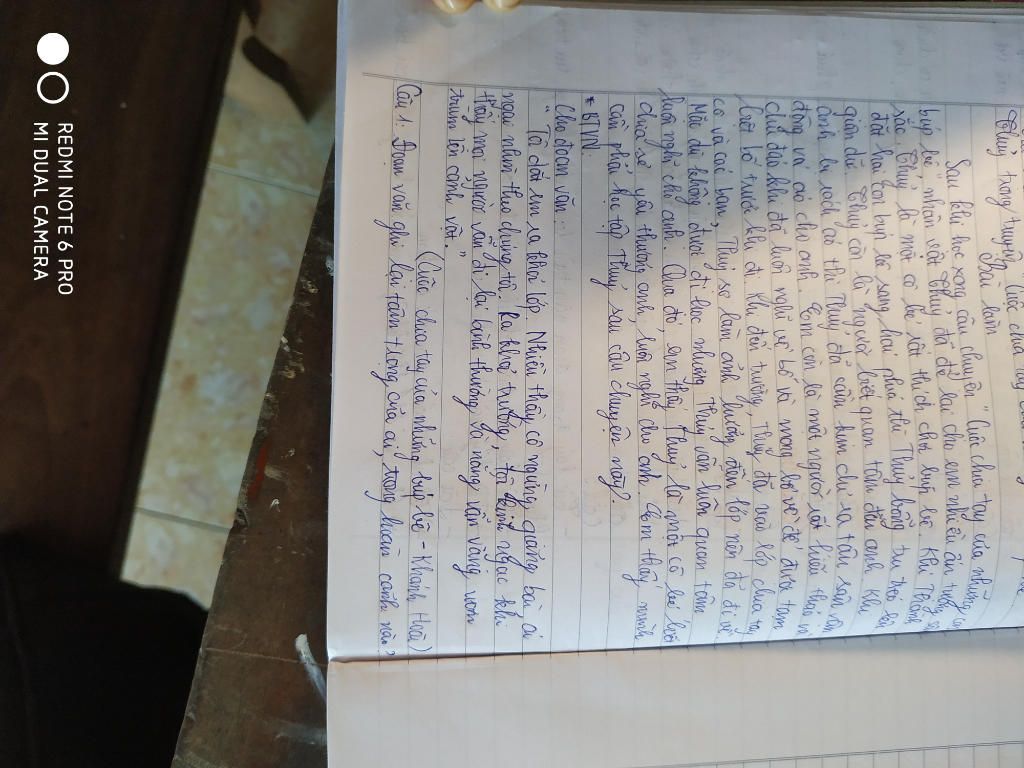 Thủy trong truyện Cuộc chia tay
Bài làm
Sau khi học xong câu chuyện " Cuộc chia tay của những con
búp bê " nhân vật Thủy đã để lại cho em nhiều ấn tượng
sắc. Thủy là một cô bé rất thích chơi búp bê. Khi Thành
đặt hai con búp bê sang hai phía thì Thủy bỗng tru tréo lên
giận dữ. Thủy còn là người biết quan tâm đến anh. Khi
anh bị rách áo thì Thủy đã cầm kim chỉ ra tận sân vận
động vá áo cho anh. Em còn là một người rất hiếu thảo và
chu đáo khi đã luôn nghĩ về bố và mong bố về để được tạm
biệt bố trước khi đi. Khi đến trường, Thủy đã vào lớp chia tay
cô và các bạn, Thủy sợ làm ảnh hưởng đến lớp nên đã đi về
Mặc dù không được đi học nhưng Thủy vẫn luôn quan tâm
luôn nghĩ cho anh. Qua đó, em thấy Thủy là một cô bé biết
chia sẻ, yêu thương anh, luôn nghĩ cho anh. Em thấy mình
cần phải học tập Thủy sau câu chuyện này.
* BTVN.
Cho đoạn văn:
" Tôi dắt em ra khỏi lớp. Nhiều thầy cô ngừng giảng bài, ái
ngại nhìn theo chúng tôi. Ra khỏi trường, tôi kinh ngạc khi
thấy mọi người vẫn đi lại bình thường và nắng vẫn vàng ươm
trùm lên cảnh vật. "
(Cuộc chia tay của những búp bê - Khánh Hoài)
Câu 1: Đoạn văn ghi lại tâm trạng của ai, trong hoàn cảnh nào?
REDMI NOTE 6 PRO
MI DUAL CAMERA